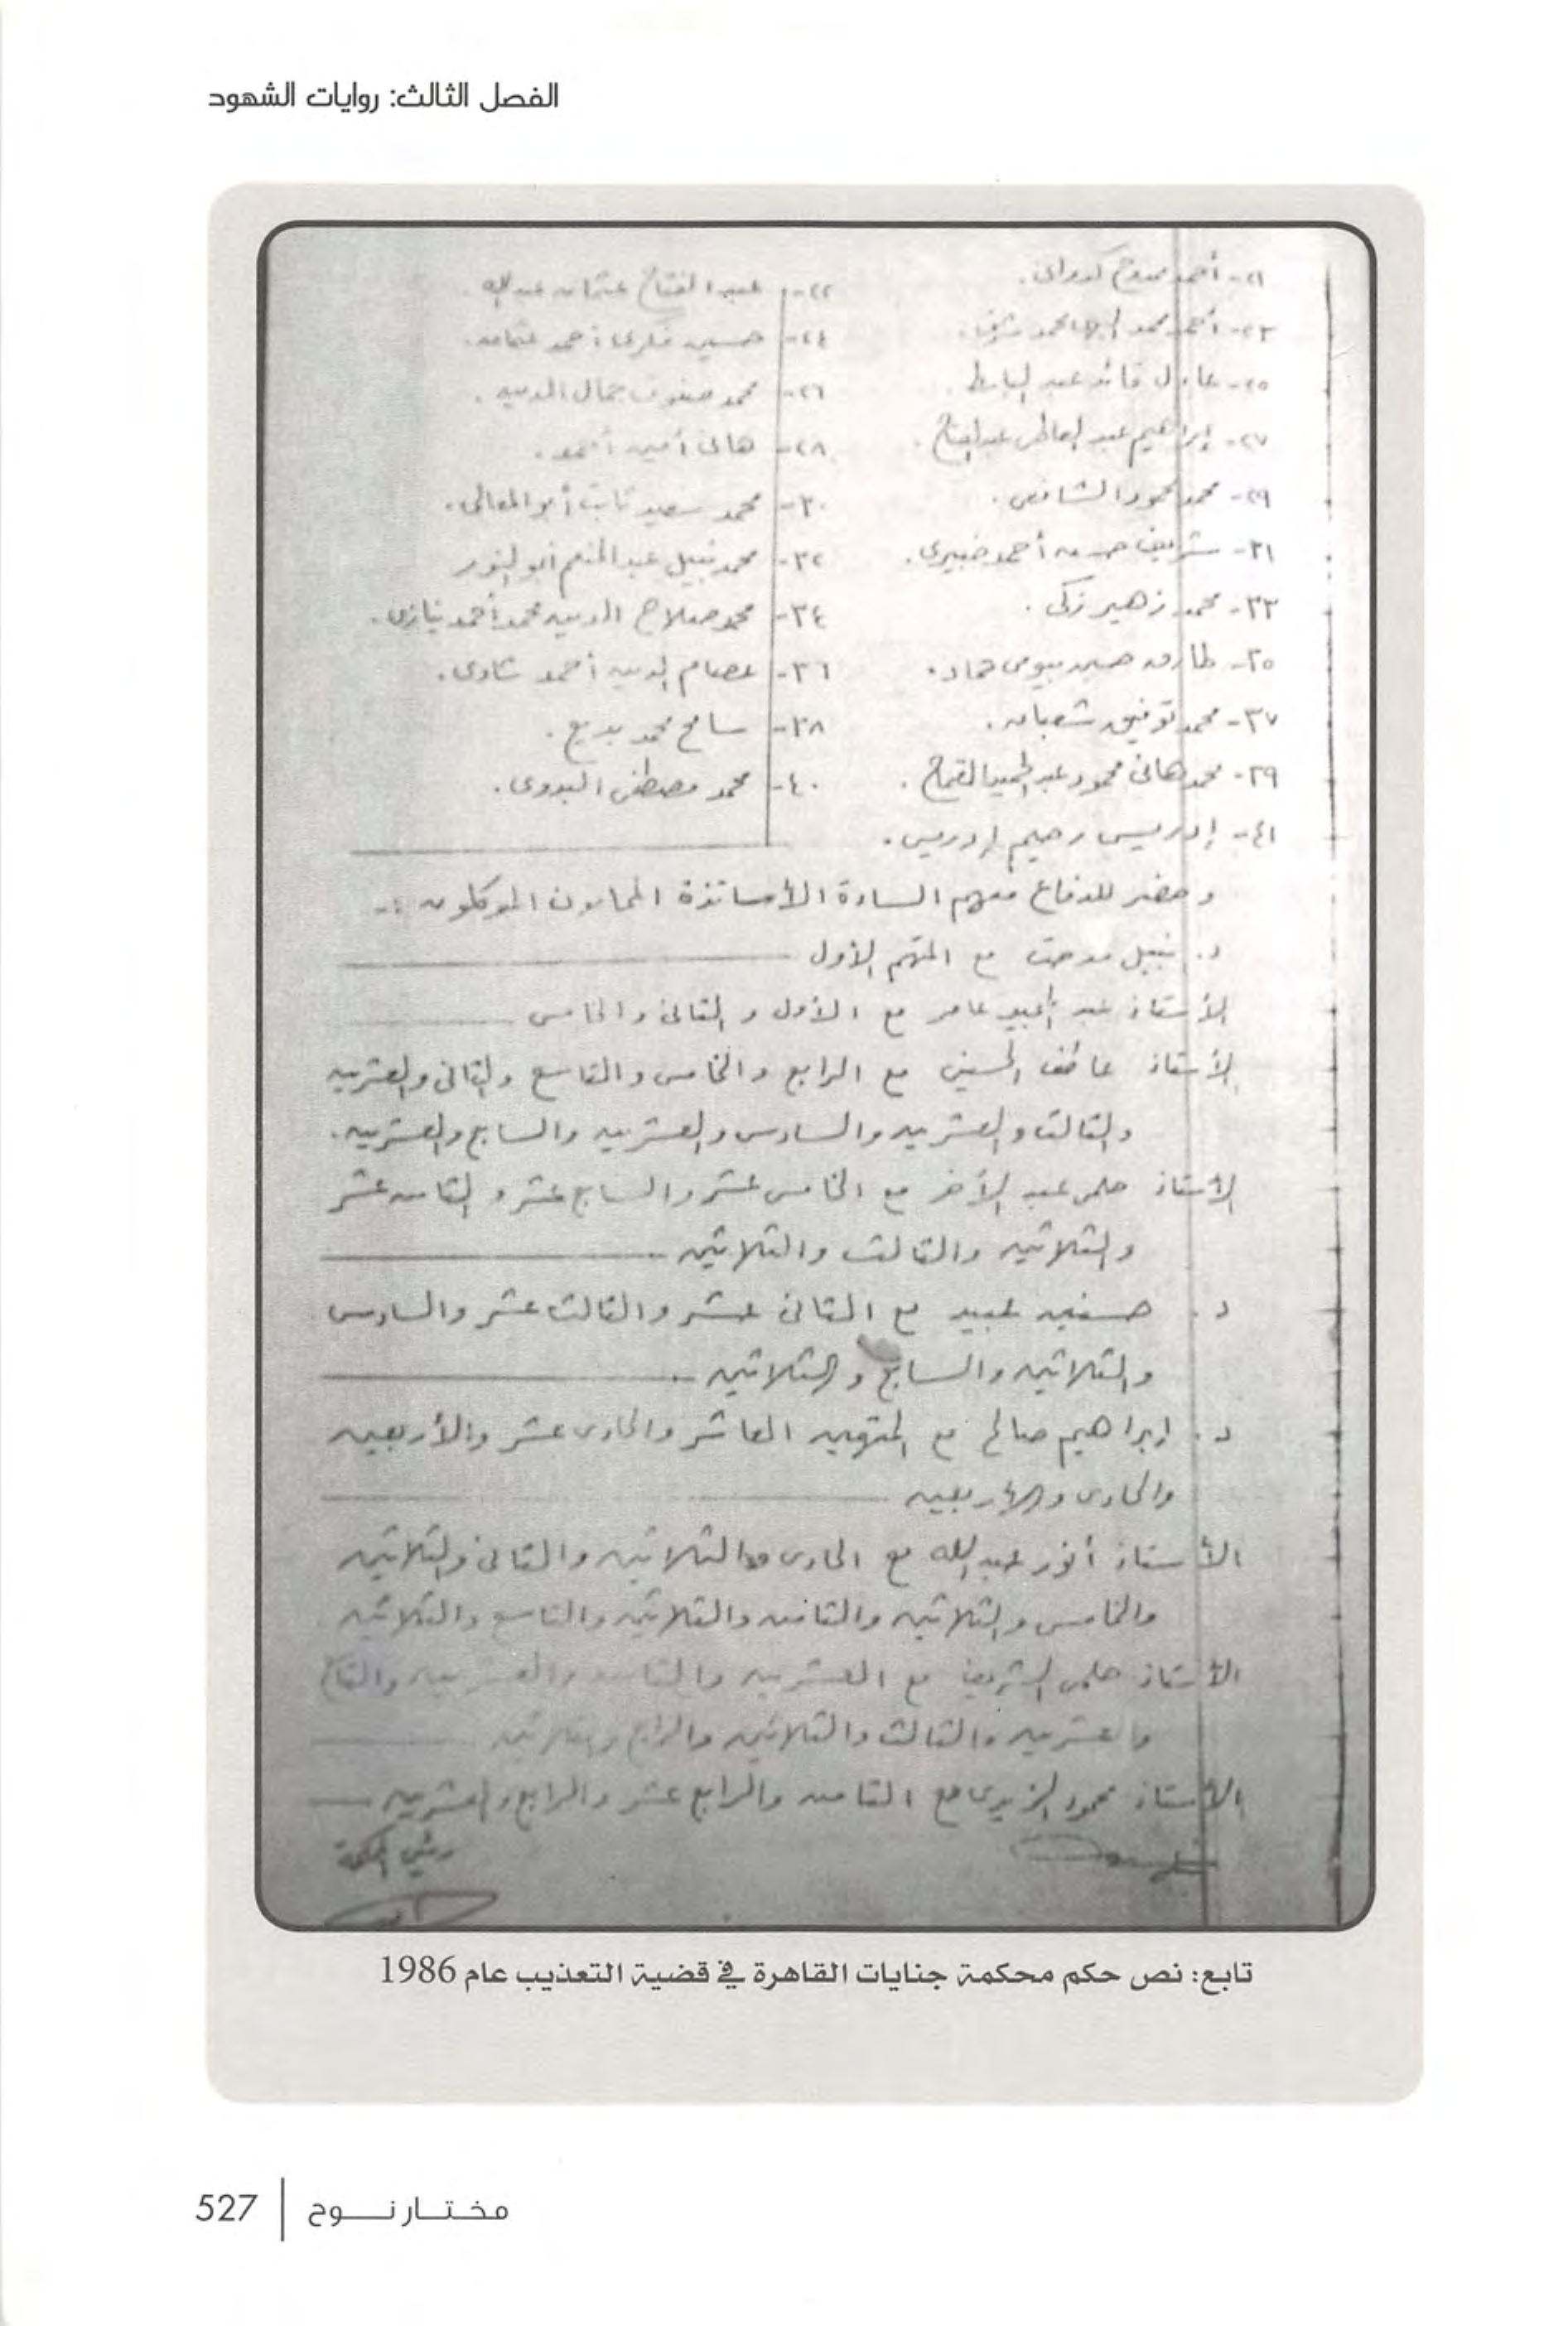 الفصل الثالث: روايات الشهود
٢١- أحمد ممدوح كدوانى.
٢٢- عبد الفتاح عثمان عبد الله.
٢٣- أحمد محمد البهى محمد شرف.
٢٤- حسين فكرى أحمد عثمان.
٢٥- عادل قائد عبد الباسط.
٢٦- محمد صفوت جمال الدين.
٢٧- إبراهيم عبد العاطى عبد الفتاح.
٢٨- هانى أمين أحمد.
٢٩- محمد محمود الشافعى.
٣٠- محمد سعيد ثابت أبو المعالى.
٣١- شريف حسن أحمد خبيرى.
٣٢- محمد نبيل عبد المنعم أبو النور
٣٣- محمد زهير زكى.
٣٤- محمد صلاح الدين محمد أحمد نيازى.
٣٥- طارق حسين بيومى حماد.
٣٦- عصام الدين أحمد شاوى.
٣٧- محمد توفيق شعبان.
٣٨- سامح محمد بديع.
٣٩- محمد هانى محمود عبد الحميد القماح.
٤٠- محمد مصطفى البدوى.
٤١- إدريس رحيم إدريس.
وحضر للدفاع معهم السادة الأساتذة المحامون الموكلون :-
د. نبيل مدحت مع المتهم الأول
الأستاذ عبد المجيد عامر مع الأول والثانى والخامس
الأستاذ عاطف الحسينى مع الرابع والخامس والتاسع والثانى والعشرين
والثالث والعشرين والسادس والعشرين والسابع والعشرين.
الأستاذ حلمى عبد الآخر مع الخامس عشر والسابع عشر والثامن عشر
والثلاثين والثالث والثلاثين
د. حسنين عبيد مع الثانى عشر والثالث عشر والسادس
والثلاثين والسابع والثلاثين
د. إبراهيم صالح مع المتهمين العاشر والحادى عشر والأربعين
والحادى والأربعين
الأستاذ أنور عبد الله مع الحادى والثلاثين والثانى والثلاثين
والخامس والثلاثين والثامن والثلاثين والتاسع والثلاثين.
الأستاذ حلمى الشريف مع العشرين والثامن والعشرين والتاسع
والعشرين والثالث والثلاثين والرابع والثلاثين
الأستاذ محمود الزيدى مع الثامن والرابع عشر والرابع والعشرين
رئيس المحكمة
تابع: نص حكم محكمة جنايات القاهرة في قضية التعذيب عام 1986
مختار نوح | 527